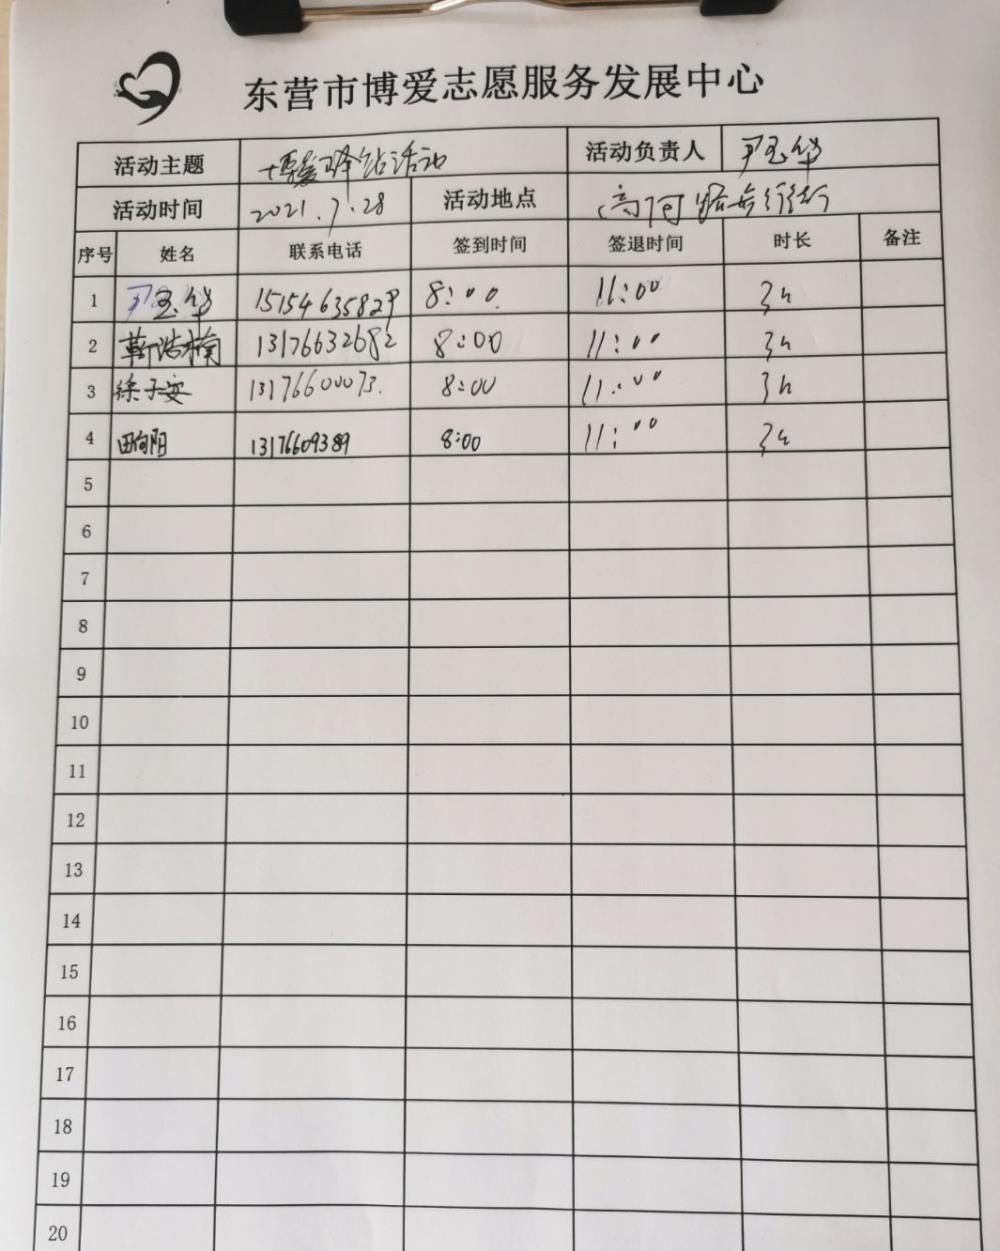 东营市博爱志愿服务发展中心
活动主题 博爱驿站活动 活动负责人 尹玉华
活动时间 2021.7.28 活动地点
序号 姓名 联系电话 签到时间 签退时间 时长 备注
1 尹玉华 15154635829 8:00 11:00 3h
2 靳浩楠 13176632682 8:00 11:00 3h
3 徐子安 13176600073. 8:00 11:00 3h
4 田向阳 13176609389 8:00 11:00 3h
5
6
7
8
9
10
11
12
13
14
15
16
17
18
19
20